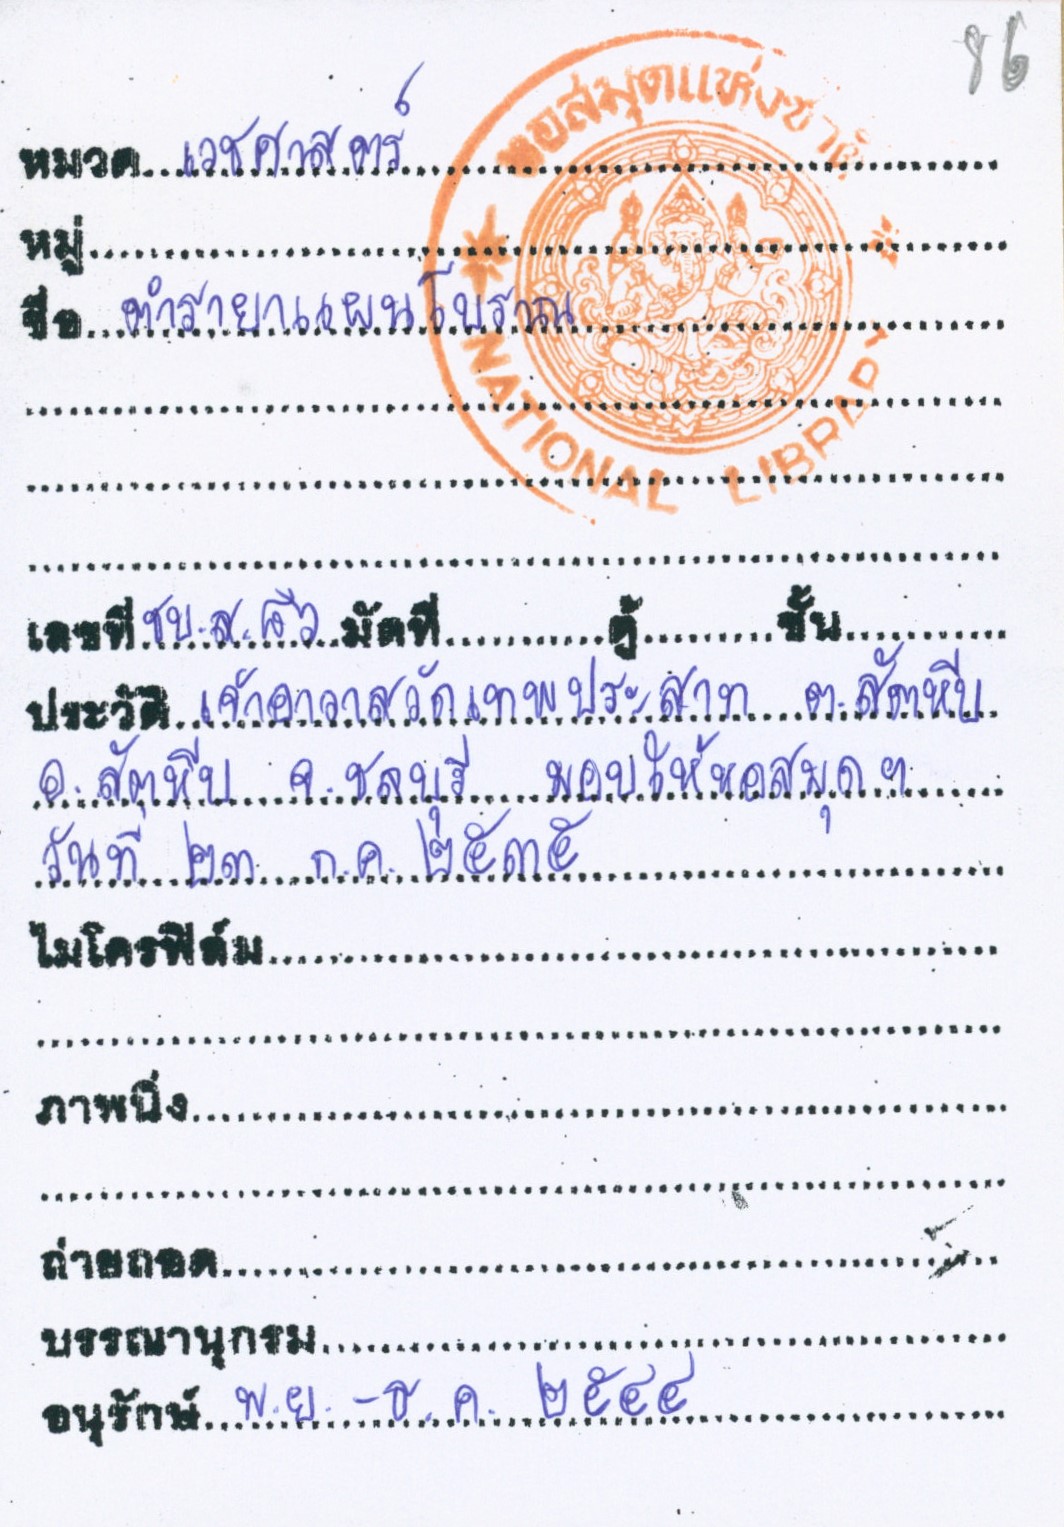 หอสมุดแห่งชาติ
NATIONAL LIBRARY
หมวด เวชศาสตร์
หมู่
ชื่อ ตำรายาแผนโบราณ
เลขที่ ชบ.ส. มัดที่ ตู้ ชั้น
ประวัติ เจ้าอาวาสวัดเทพประสาท ต.สัตหีบ
อ.สัตหีบ จ.ชลบุรี มอบให้หอสมุดฯ
วันที่ ๒๓ ก.ค. ๒๕๓๕
ไมโครฟิล์ม
ภาพนิ่ง
ถ่ายถอด
บรรณานุกรม
อนุรักษ์ พ.ย. - ธ.ค. ๒๕๔๔